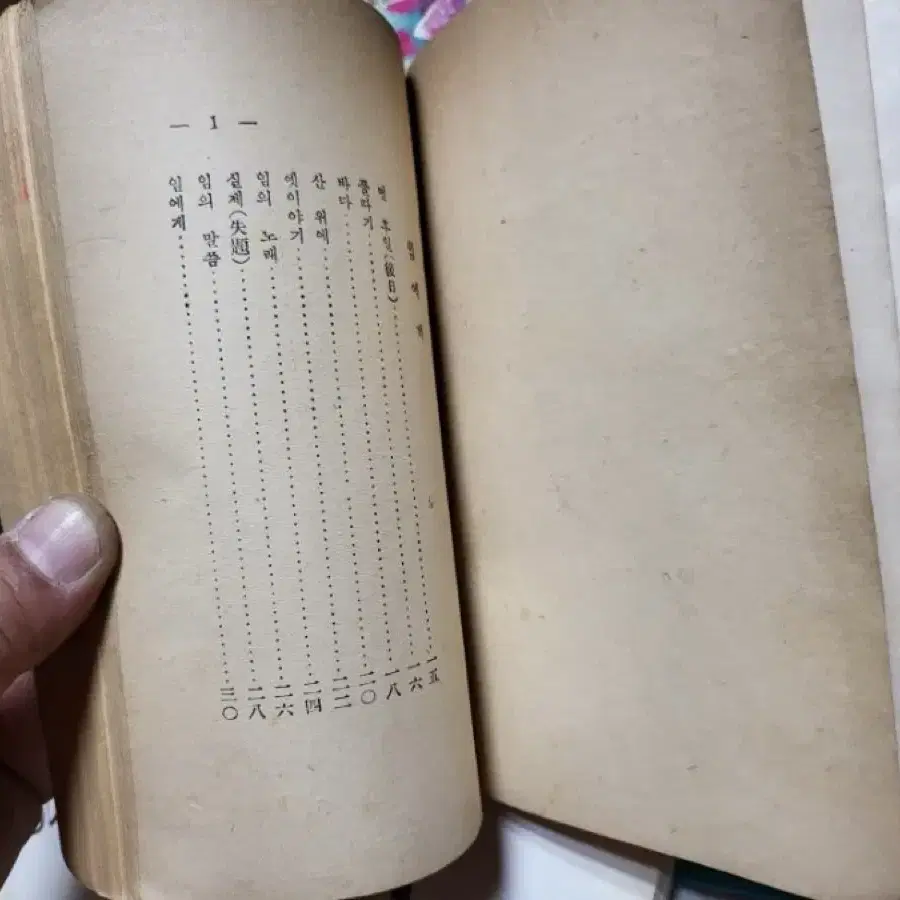 — 1 —
임 에 게
먼 후일(後日)……一五
풀따기……一六
바다……一八
산 위에……二〇
옛이야기……二二
임의 노래……二四
실제(失題)……二六
임의 말씀……二八
임에게……三〇